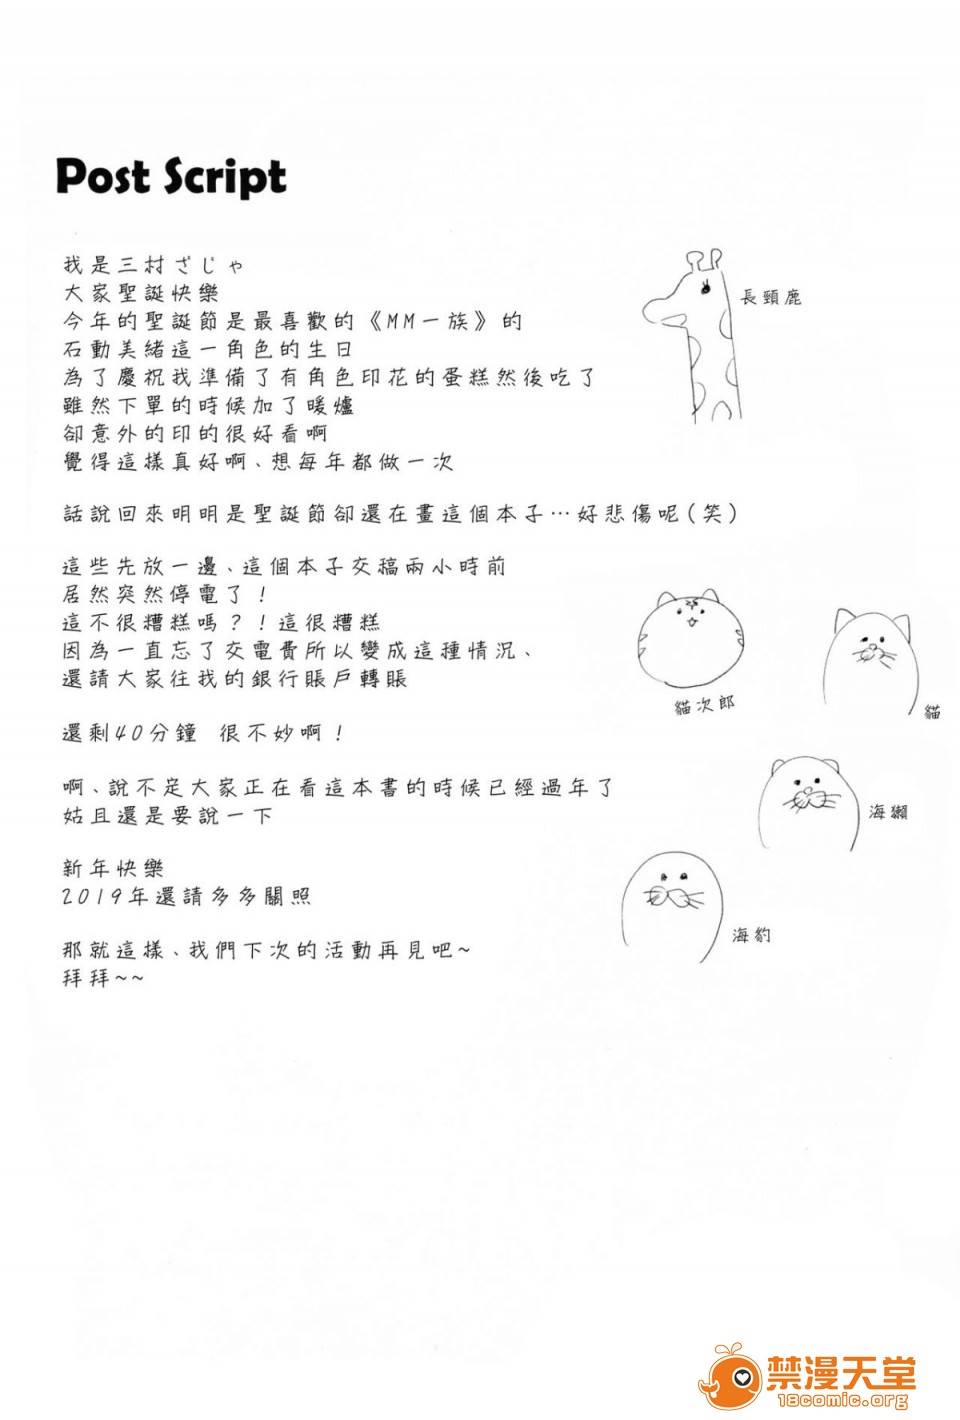 Post Script
我是三村ざじゃ
大家聖誕快樂
今年的聖誕節是最喜歡的《MM一族》的
石動美緒這一角色的生日
為了慶祝我準備了有角色印花的蛋糕然後吃了
雖然下單的時候加了暖爐
卻意外的印的很好看啊
覺得這樣真好啊、想每年都做一次
話說回來明明是聖誕節卻還在畫這個本子…好悲傷呢(笑)
這些先放一邊、這個本子交稿兩小時前
居然突然停電了!
這不很糟糕嗎?!這很糟糕
因為一直忘了交電費所以變成這種情況、
還請大家往我的銀行賬戶轉賬
還剩40分鐘 很不妙啊!
啊、說不定大家正在看這本書的時候已經過年了
姑且還是要說一下
新年快樂
2019年還請多多關照
那就這樣、我們下次的活動再見吧~
拜拜~~
長頸鹿
貓次郎
貓
海獺
海豹
禁漫天堂
18comic.org